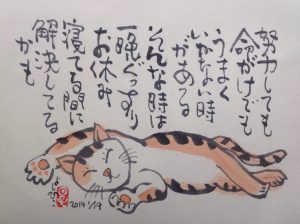 努力しても
命がけでも
うまく
いかない時
がある
そんな時は
一晩ぐっすり
お休み
寝てる間に
解決してる
かも
2014 1/19